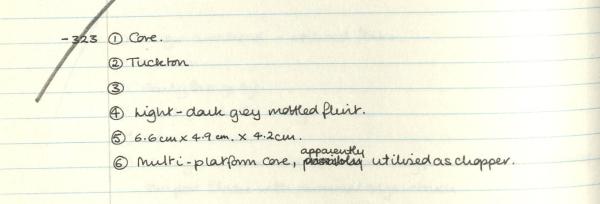 -323 ① Core.
② Tuckton
③
④ Light-dark grey mottled flint.
⑤ 6.6cm x 4.9cm. x 4.2cm.
apparently
⑥ Multi-platform core, possibly utilised as chopper.